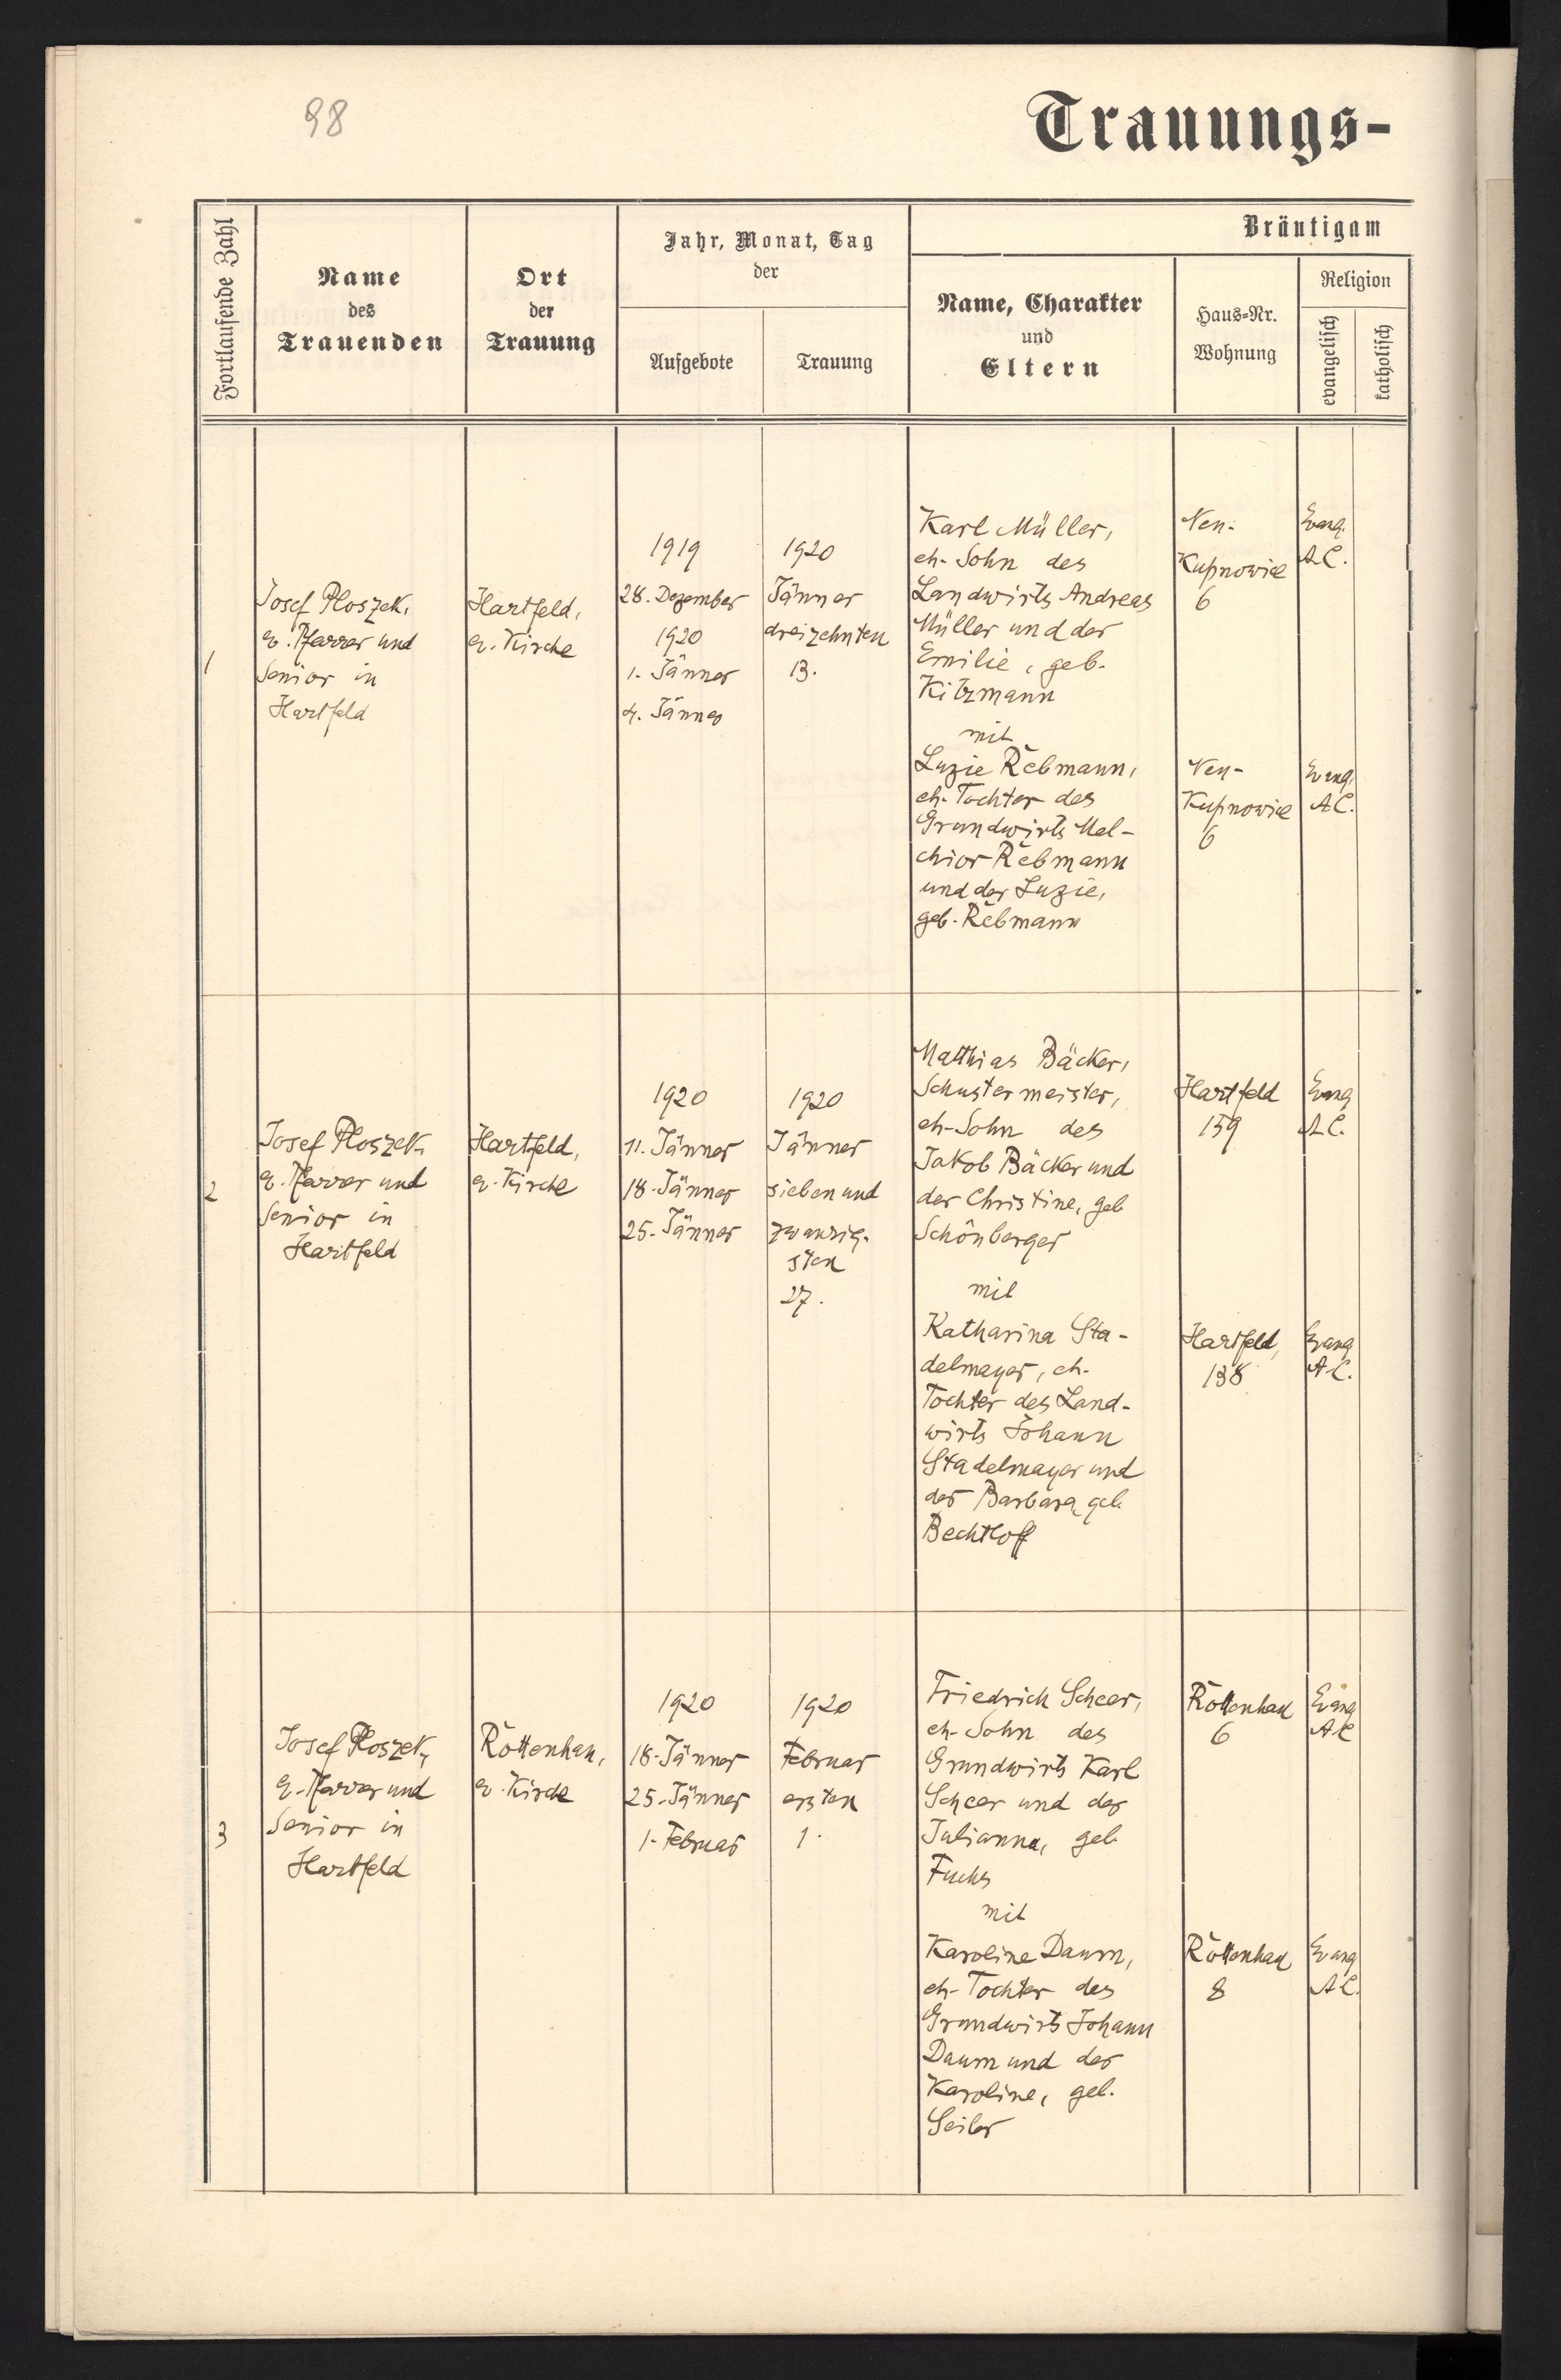 98
Trauungs-
Fortlaufende Zahl
Name
des
Trauenden
Ort
der
Trauung
Jahr, Monat, Tag
der
Aufgebote
Trauung
Bräutigam
Name, Charakter
und
Eltern
Haus-Nr.
Wohnung
Religion
evangelisch
katholisch
1
Josef Ploszek,
ev. Pfarrer und
Senior in
Hartfeld
Hartfeld,
ev. Kirche
1919
28. Dezember
1920
1. Jänner
4. Jänner
1920
Jänner
dreizehnten
13.
Karl Müller,
eh. Sohn des
Landwirts Andreas
Müller und der
Emilie, geb.
Kitzmann
mit
Luzie Rebmann,
eh. Tochter des
Grundwirts Mel-
chior Rebmann
und der Luzie,
geb. Rebmann
Neu-
Kupnowice
6
Neu-
Kupnowice
6
Evang.
A.C.
Evang.
A.C.
2
Josef Ploszek,
ev. Pfarrer und
Senior in
Hartfeld
Hartfeld,
ev. Kirche
1920
11. Jänner
18. Jänner
25. Jänner
1920
Jänner
sieben und
zwanzig-
sten
27.
Matthias Bäcker,
Schustermeister,
eh. Sohn des
Jakob Bäcker und
der Christine, geb
Schönberger
mit
Katharina Sta-
delmayer, eh.
Tochter des Land-
wirts Johann
Stadelmayer und
der Barbara, geb.
Bechtloff
Hartfeld
159
Hartfeld,
138
Evang
A.C.
Evang
A.C.
3
Josef Ploszek,
ev. Pfarrer und
Senior in
Hartfeld
Rottenhan,
ev. Kirche
1920
18. Jänner
25. Jänner
1. Februar
1920
Februar
ersten
1.
Friedrich Scheer,
eh. Sohn des
Grundwirts Karl
Scheer und der
Julianna, geb.
Fuchs
mit
Karoline Daum,
eh. Tochter des
Grundwirts Johann
Daum und der
Karoline, geb.
Seiler
Rottenhan
6
Rottenhan
8
Evang
A.C
Evang
A.C.